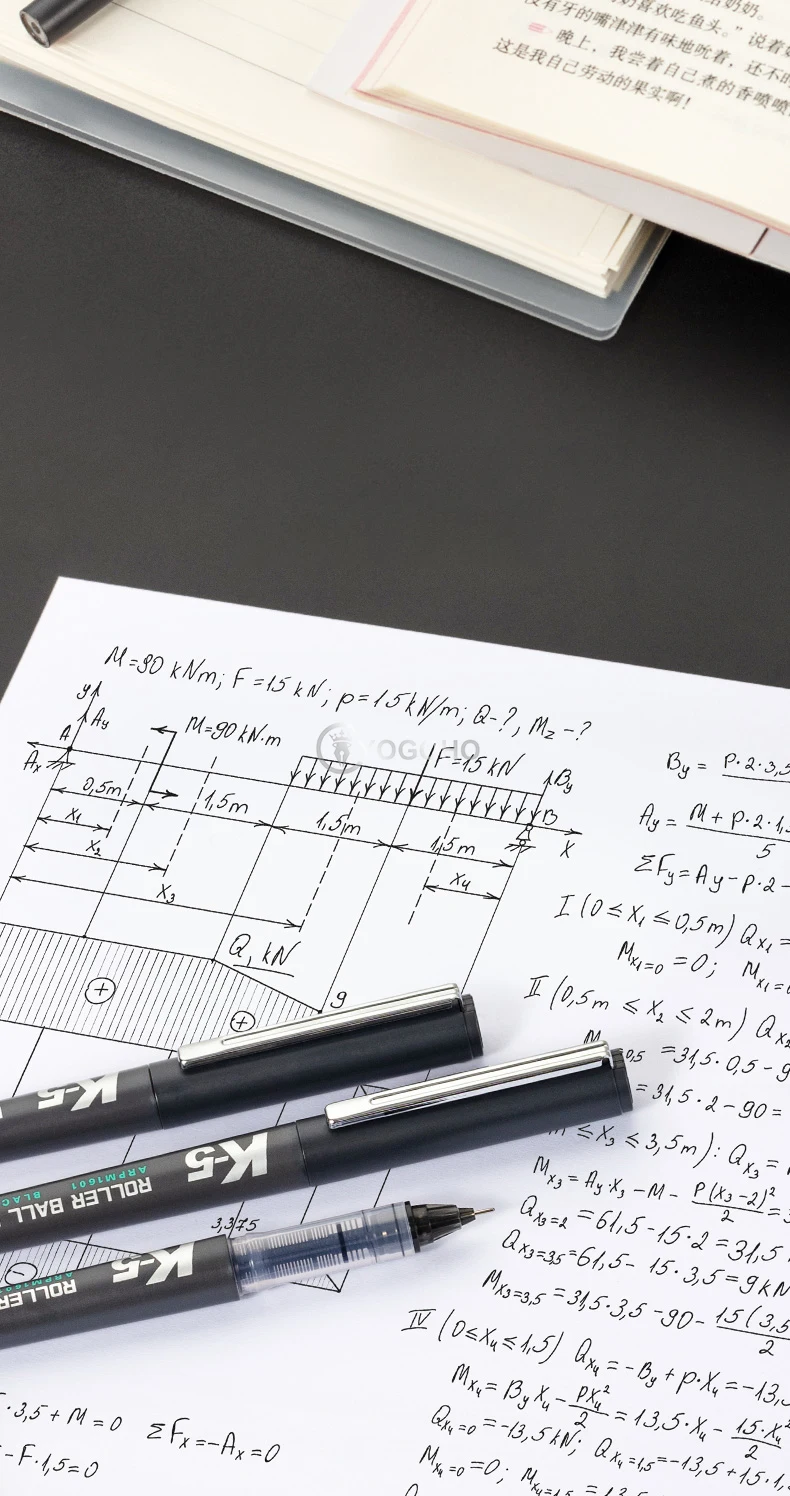 奶奶。
奶喜欢吃鱼头。”说着
没有牙的嘴津津有味地吮着，还不时
晚上，我尝着自己煮的香喷喷
这是我自己劳动的果实啊！
M=90 kNm; F=15 kN; p=15 kN/m; Q-?, Mz-?
y
Ay
A
Ax
M=90 kN·m
YOGOHO
F=15 kN
By
B
X
0,5m
1,5m
1,5m
1,5m
x1
x2
x3
x4
Q, kN
+
+
9
By = P·2·3,5
Ay = M + p·2·1,
5
ΣFy = Ay - p·2 -
I (0 ≤ x1 ≤ 0,5m) Qx1 =
Mx1=0 = 0; Mx1=
II (0,5m ≤ x2 ≤ 2m) Qx2
0,5 = 31,5·0,5 - 9
= 31,5·2 - 90 =
≤ x3 ≤ 3,5m): Qx3 =
Mx3 = Ay·x3 - M - P(x3-2)²/2 =
Qx3=2 = 61,5 - 15·2 = 31,5
Qx3=3,5 = 61,5 - 15·3,5 = 9 kN
Mx3=3,5 = 31,5·3,5 - 90 - 15(3,5
2
IV (0 ≤ x4 ≤ 1,5) Qx4 = -By + p·x4 = -13,
Mx4 = By x4 - px4²/2 = 13,5·x4 - 15·x4²/2
Qx4=0 = -13,5 kN; Qx4=1,5 = -13,5 + 15·1,
Mx4=0 = 0; Mx4=1,5 = 13,5
K-5
K-5
ROLLER BALL
ARPM1601
BLAC
3,375
K-5
ROLLER
ARPM1601
-
·3,5 + M = 0
ΣFx = -Ax = 0
- F·1,5 = 0